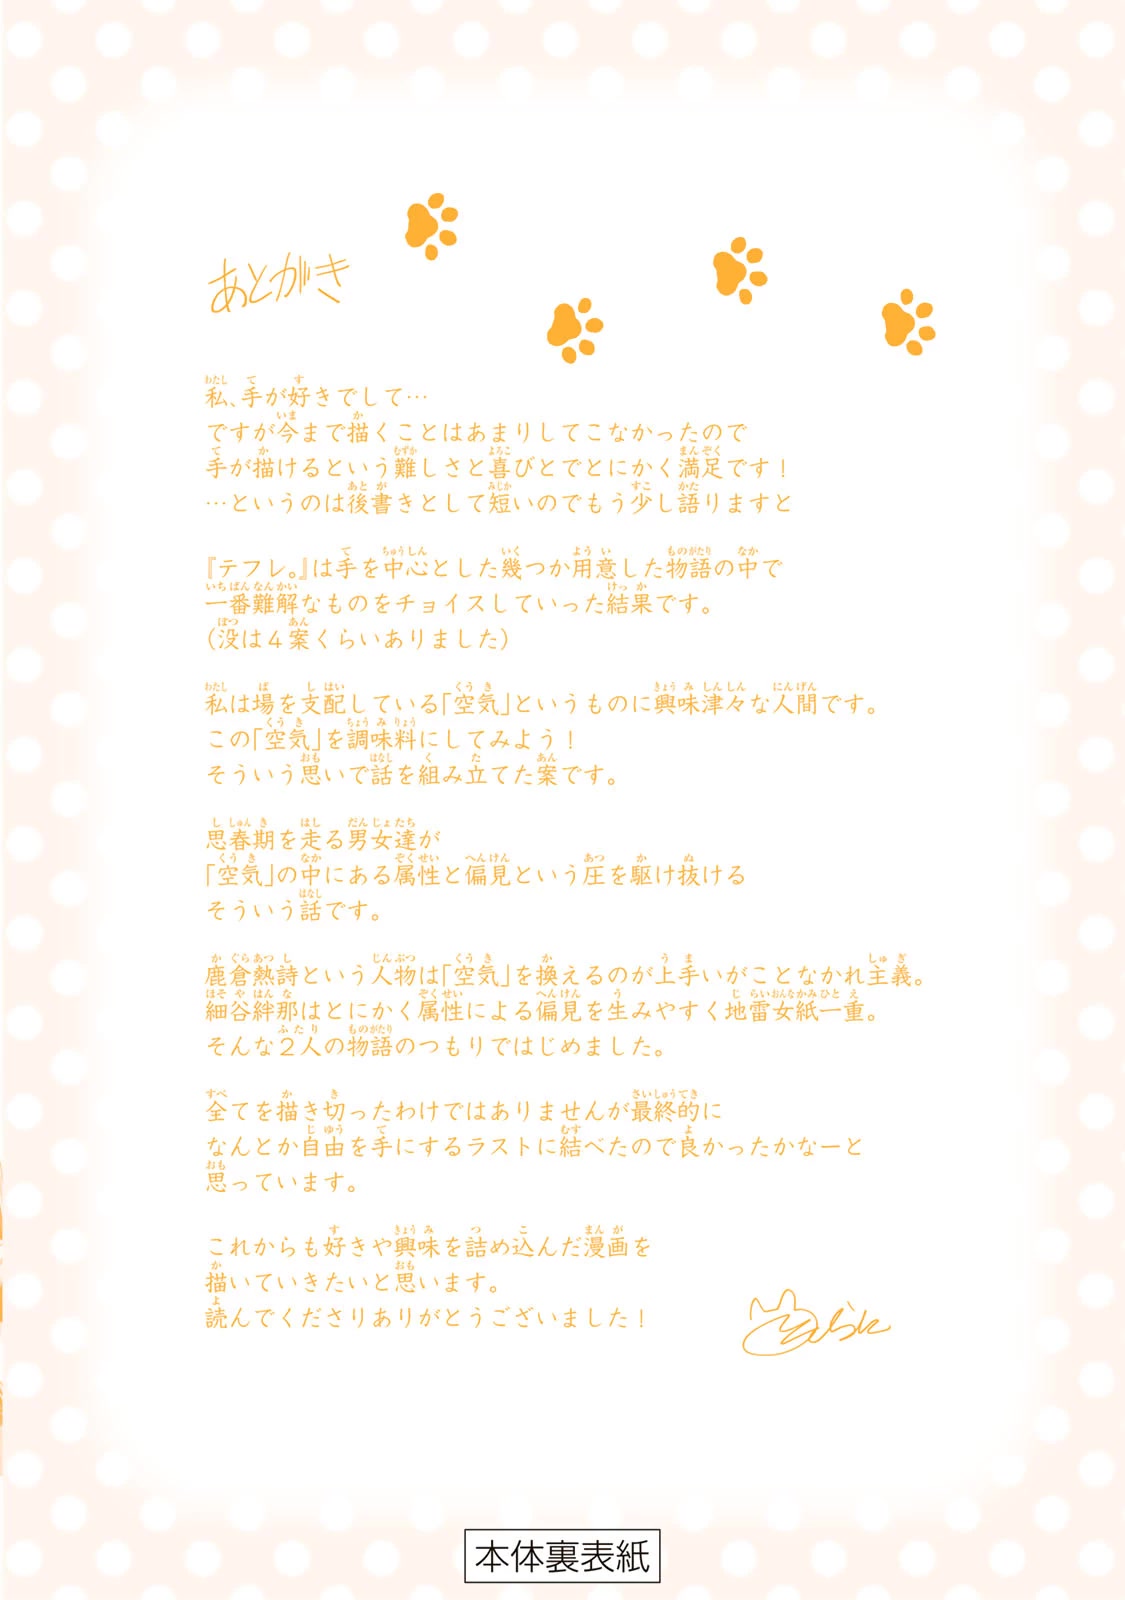 あとがき
私、手が好きでして…
ですが今まで描くことはあまりしてこなかったので
手が描けるという難しさと喜びとでとにかく満足です！
…というのは後書きとして短いのでもう少し語りますと
『テフレ。』は手を中心とした幾つか用意した物語の中で
一番難解なものをチョイスしていった結果です。
（没は４案くらいありました）
私は場を支配している「空気」というものに興味津々な人間です。
この「空気」を調味料にしてみよう！
そういう思いで話を組み立てた案です。
思春期を走る男女達が
「空気」の中にある属性と偏見という圧を駆け抜ける
そういう話です。
鹿倉熱詩という人物は「空気」を換えるのが上手いがことなかれ主義。
細谷絆那はとにかく属性による偏見を生みやすく地雷女紙一重。
そんな２人の物語のつもりではじめました。
全てを描き切ったわけではありませんが最終的に
なんとか自由を手にするラストに結べたので良かったかなーと
思っています。
これからも好きや興味を詰め込んだ漫画を
描いていきたいと思います。
読んでくださりありがとうございました！
本体裏表紙